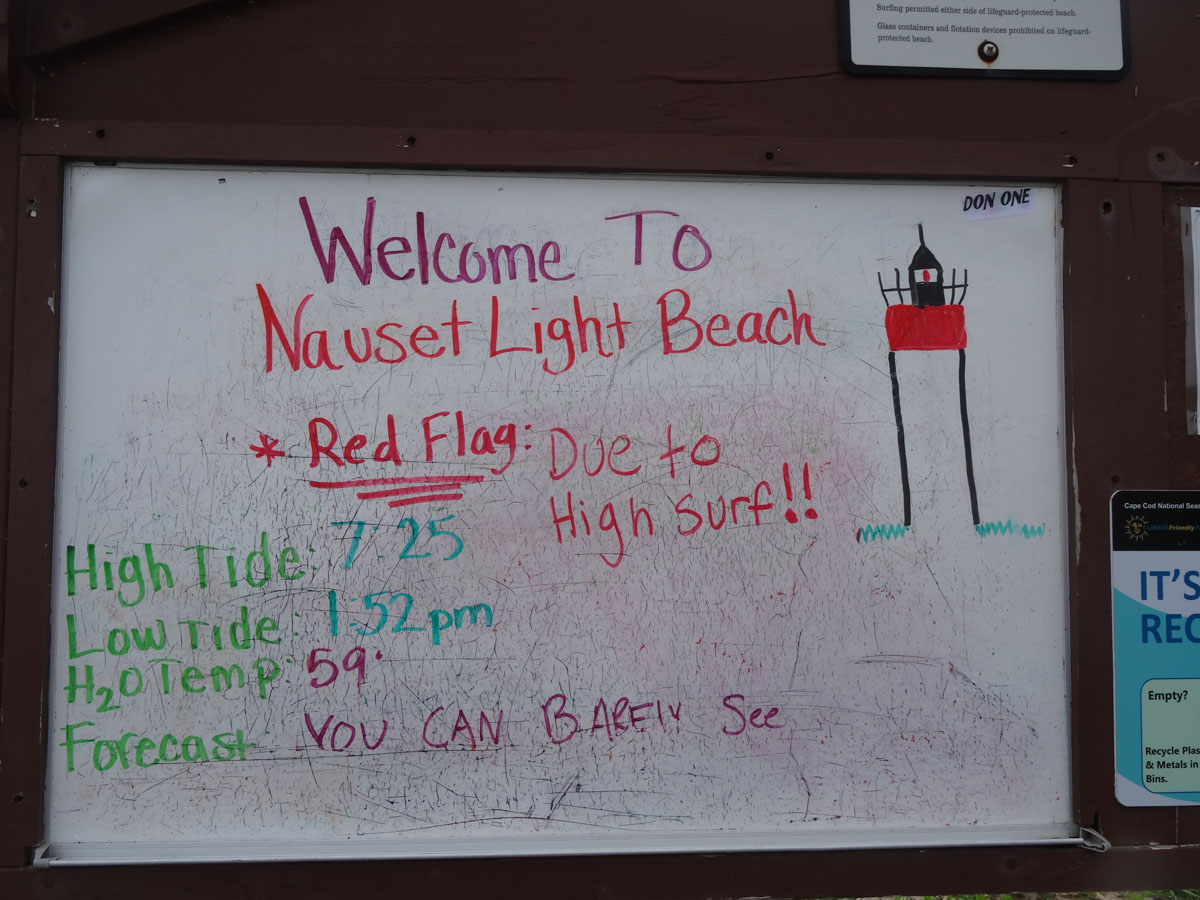 Surfing permitted either side of lifeguard-protected beach.
Glass containers and flotation devices prohibited on lifeguard-
protected beach.
DON ONE
Welcome To
Nauset Light Beach
* Red Flag: Due to
High Surf!!
High Tide: 7:25
Low Tide: 1:52pm
H₂O Temp: 59°
Forecast YOU CAN BAREly See
Cape Cod National Seas
CLIMATE Friendly
IT'S
REC
Empty?
Recycle Plas
& Metals in
Bins.